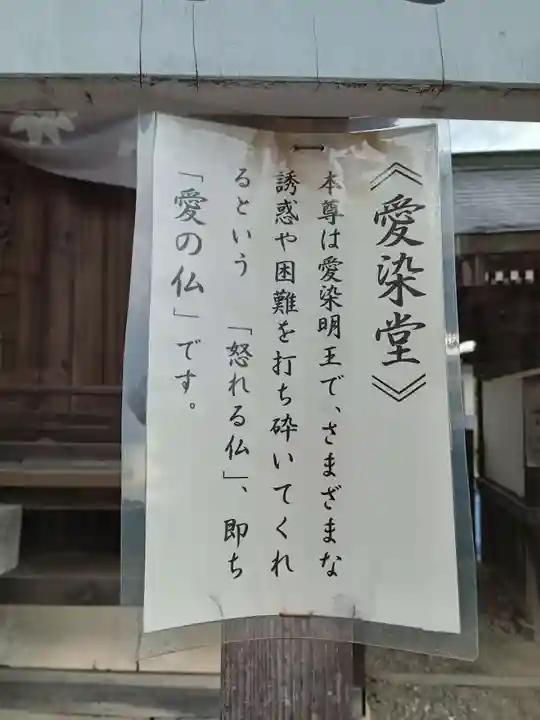 《愛染堂》
本尊は愛染明王で、さまざまな
誘惑や困難を打ち砕いてくれ
るという 「怒れる仏」、即ち
「愛の仏」です。